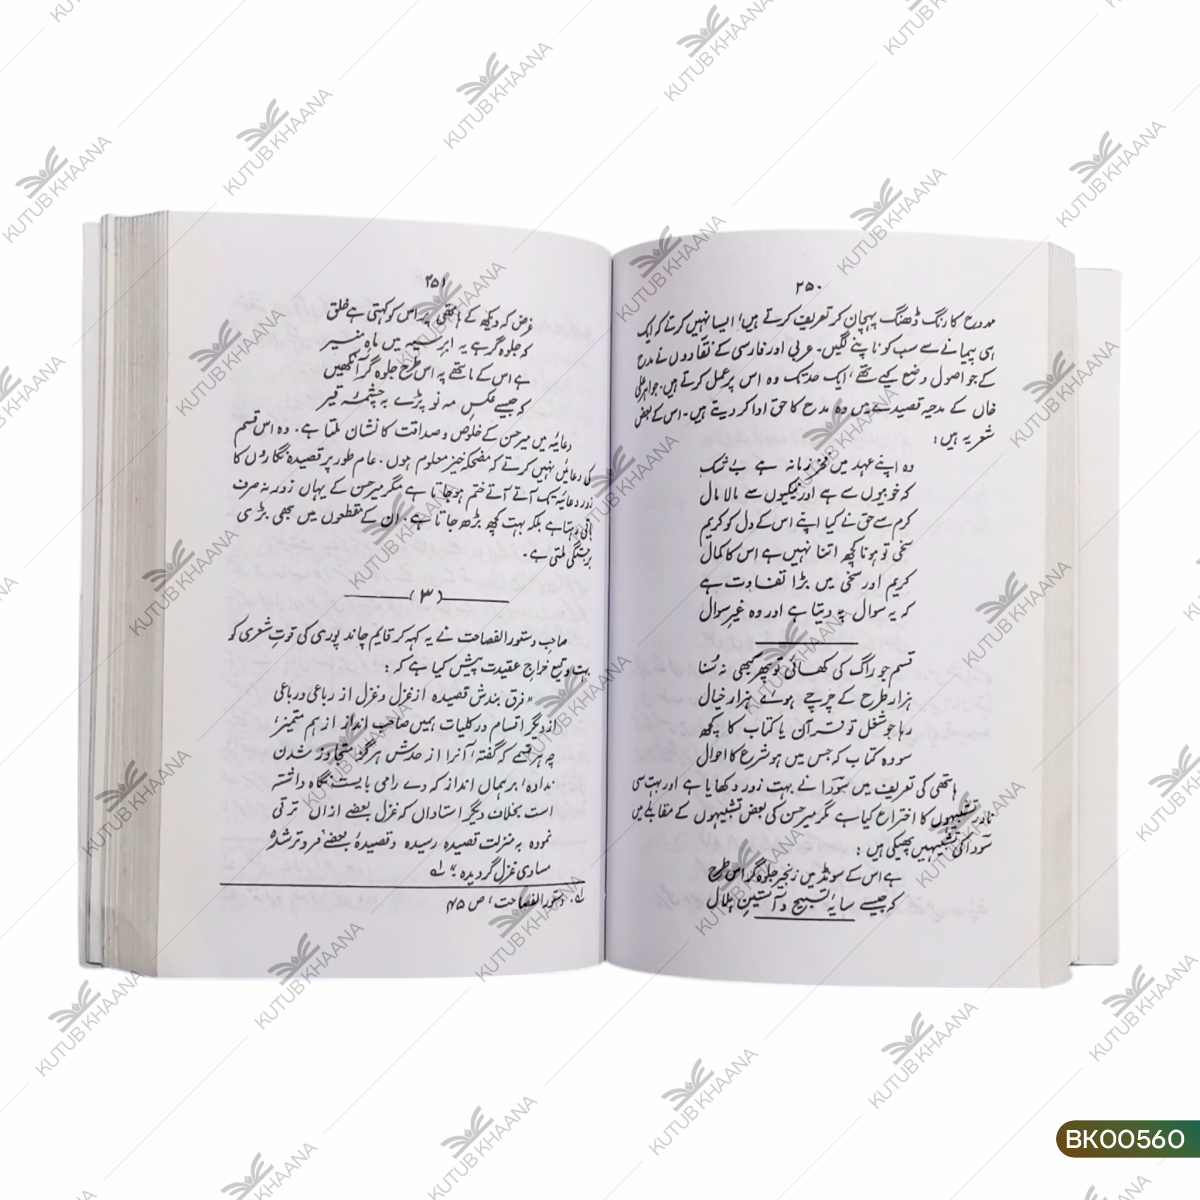 ۲۵۰
ممدوح کا رنگ ڈھنگ پہچان کر تعریف کرتے ہیں، ایسا نہیں کرتے کہ ایک
ہی پیمانے سے سب کو ناپنے لگیں۔ عربی اور فارسی کے نقادوں نے مدح
کے جو اصول وضع کیے تھے، ایک حد تک وہ اس پر عمل کرتے ہیں۔ جواہر علی
خاں کے مدحیہ قصیدے میں وہ مدح کا حق ادا کر دیتے ہیں۔ اس کے بعض
شعر یہ ہیں:
وہ اپنے عہد میں فخرِ زمانہ ہے بے شک
کہ خوبیوں سے ہے اور نیکیوں سے مالا مال
کرم سے حق نے کیا اپنے اس کے دل کو کریم
سخی تو ہونا کچھ اتنا نہیں ہے اس کا کمال
کریم اور سخی میں بڑا تفاوت ہے
کہ یہ سوال پہ دیتا ہے اور وہ غیرِ سوال
قسم جو راگ کی کھائی تو پھر کبھی نہ سُنا
ہزار طرح کے چرچے ہوئے ہزار خیال
رہا جو شغل تو قرآن یا کتاب کا کچھ
سو وہ کتاب کہ جس میں ہو شرع کا احوال
ہاتھی کی تعریف میں سودا نے بہت زور دکھایا ہے اور بہت سی
نادر تشبیہوں کا اختراع کیا ہے مگر میر حسن کی بعض تشبیہوں کے مقابلے میں
سودا کی تشبیہیں پھیکی ہیں:
ہے اس کے سونڈ میں زنجیر جلوہ گر اس طرح
کہ جیسے سایۂ تسبیح و آستینِ ہلال
۲۵۱
غرض کہ دیکھ کے ہاتھی پر اس کو کہتی ہے خلق
کہ جلوہ گر ہے یہ ابرِ سیہ میں ماہِ منیر
ہے اس کے ماتھے پہ اس طرح جلوہ گر آنکھیں
کہ جیسے عکسِ مہِ نو پڑے بہ چشمۂ قیر
دعائیہ میں میر حسن کے خلوص و صداقت کا نشان ملتا ہے۔ وہ اس قسم
کی دعائیں نہیں کرتے کہ مضحکہ خیز معلوم ہوں۔ عام طور پر قصیدہ نگاروں کا
زور دعائیہ تک آتے آتے ختم ہو جاتا ہے مگر میر حسن کے یہاں زور نہ صرف
باقی رہتا ہے بلکہ بہت کچھ بڑھ جاتا ہے۔ ان کے مقطعوں میں بھی بڑی
برجستگی ملتی ہے۔
(۳)
صاحبِ دستور الفصاحت نے یہ کہہ کر قایم چاند پوری کی قوتِ شعری کو
بہت وقیع خراجِ عقیدت پیش کیا ہے کہ:
"فرق بندش قصیدہ از غزل و غزل از رباعی و رباعی
از دیگر اقسام در کلیات ہمیں صاحب انداز از ہم متمیز،
چہ ہر قسمے کہ گفتہ، آنرا از حدش ہرگز متجاوز شدن
ندادہ، برہماں انداز کہ دے رامی بایست نگاہ داشتہ
است بخلاف دیگر استاداں کہ غزل بعضے از ان ترقی
نمودہ بہ منزلت قصیدہ رسیدہ و قصیدۂ بعضے فروتر شدہ
مساوی غزل گردیدہ" لہ
لہ۔ دستور الفصاحت، ص ۴۵
KUTUB KHAANA
BK00560